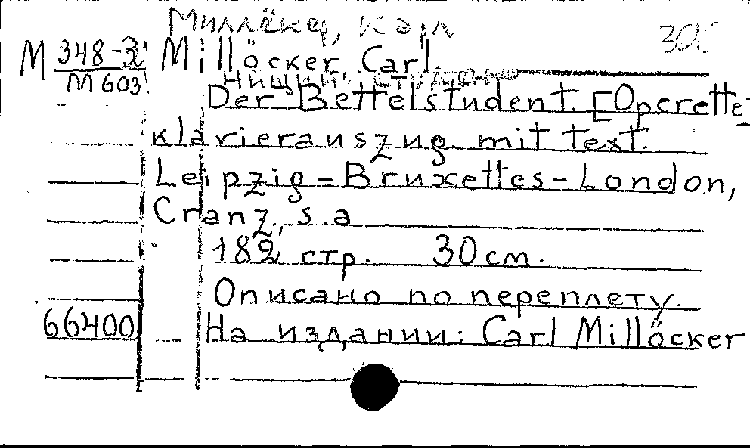 Миллёкер, Карл
М 348-3 Millöcker, Carl.
М 603 Нищий студент
Der Bettelstudent. [Operette]
klavierauszug mit text.
Leipzig - Bruxettes - London,
Cranz, s. a
182 стр. 30 см.
Описано по переплету.
66400 На издании: Carl Millöcker